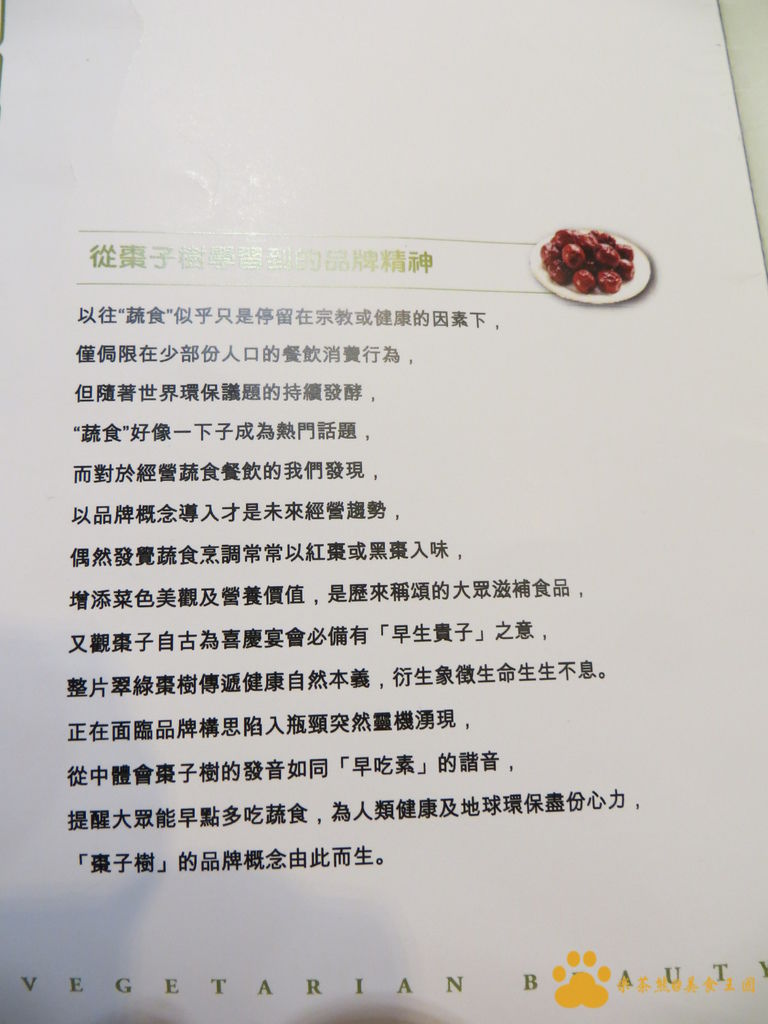 從棗子樹學習到的品牌精神
以往“蔬食”似乎只是停留在宗教或健康的因素下，
僅侷限在少部份人口的餐飲消費行為，
但隨著世界環保議題的持續發酵，
“蔬食”好像一下子成為熱門話題，
而對於經營蔬食餐飲的我們發現，
以品牌概念導入才是未來經營趨勢，
偶然發覺蔬食烹調常常以紅棗或黑棗入味，
增添菜色美觀及營養價值，是歷來稱頌的大眾滋補食品，
又觀棗子自古為喜慶宴會必備有「早生貴子」之意，
整片翠綠棗樹傳遞健康自然本義，衍生象徵生命生生不息。
正在面臨品牌構思陷入瓶頸突然靈機湧現，
從中體會棗子樹的發音如同「早吃素」的諧音，
提醒大眾能早點多吃蔬食，為人類健康及地球環保盡份心力，
「棗子樹」的品牌概念由此而生。
VEGETARIAN BEAUTY
美食王國